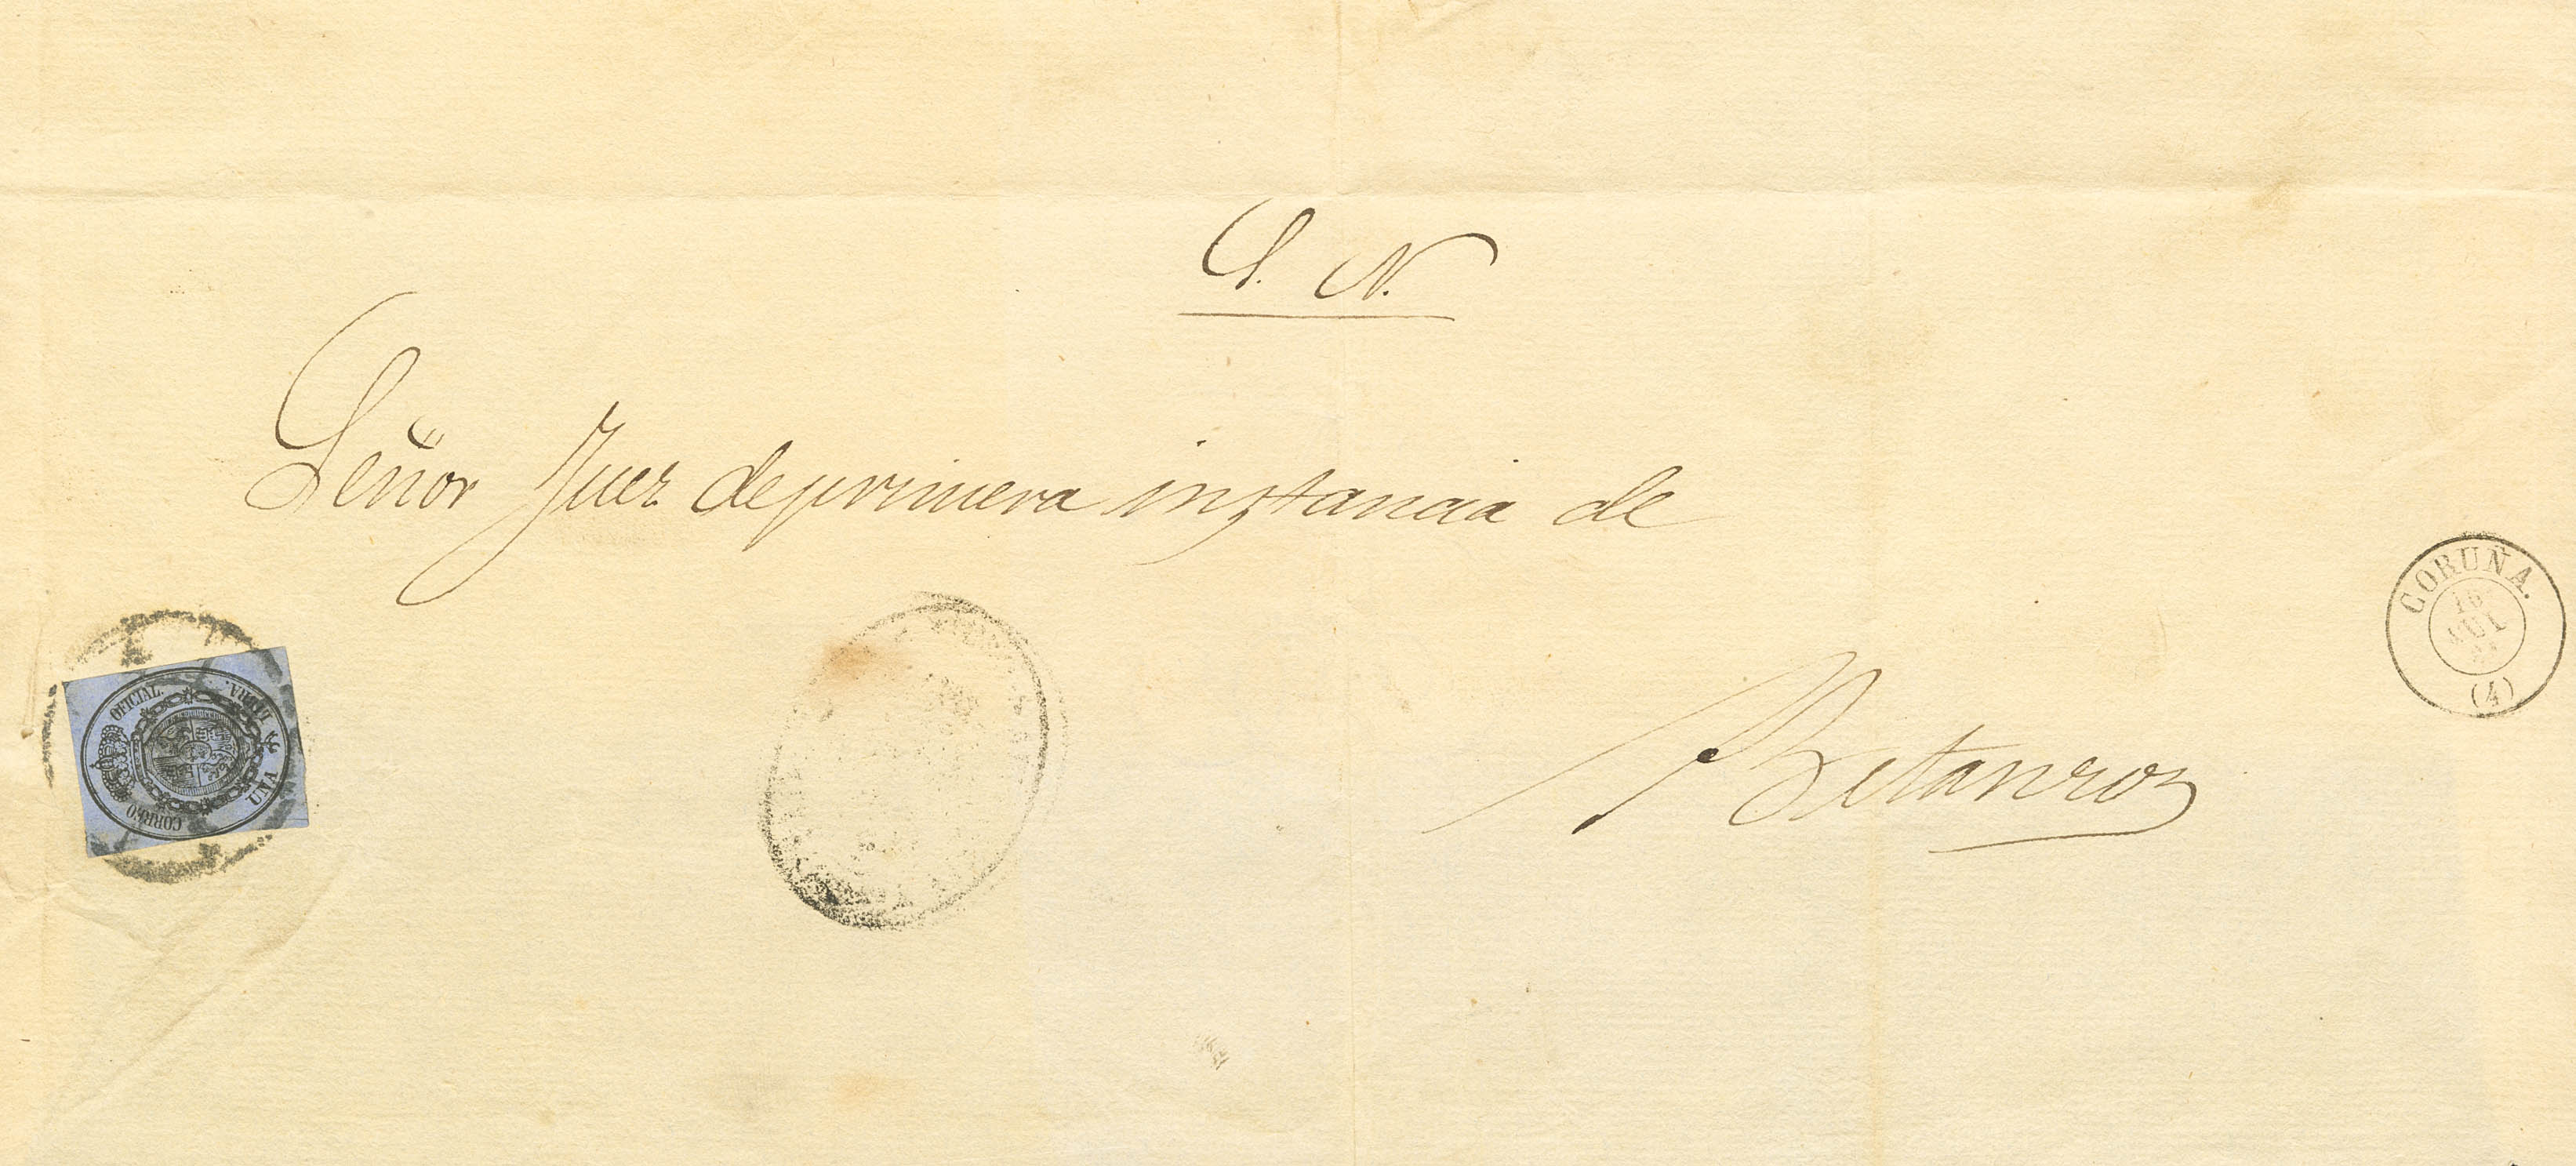 S. N.
Señor Juez de primera instancia de
Betanzos
CORREO OFICIAL.
UNA LIBRA.
CORUÑA.
16
JUL
(4)